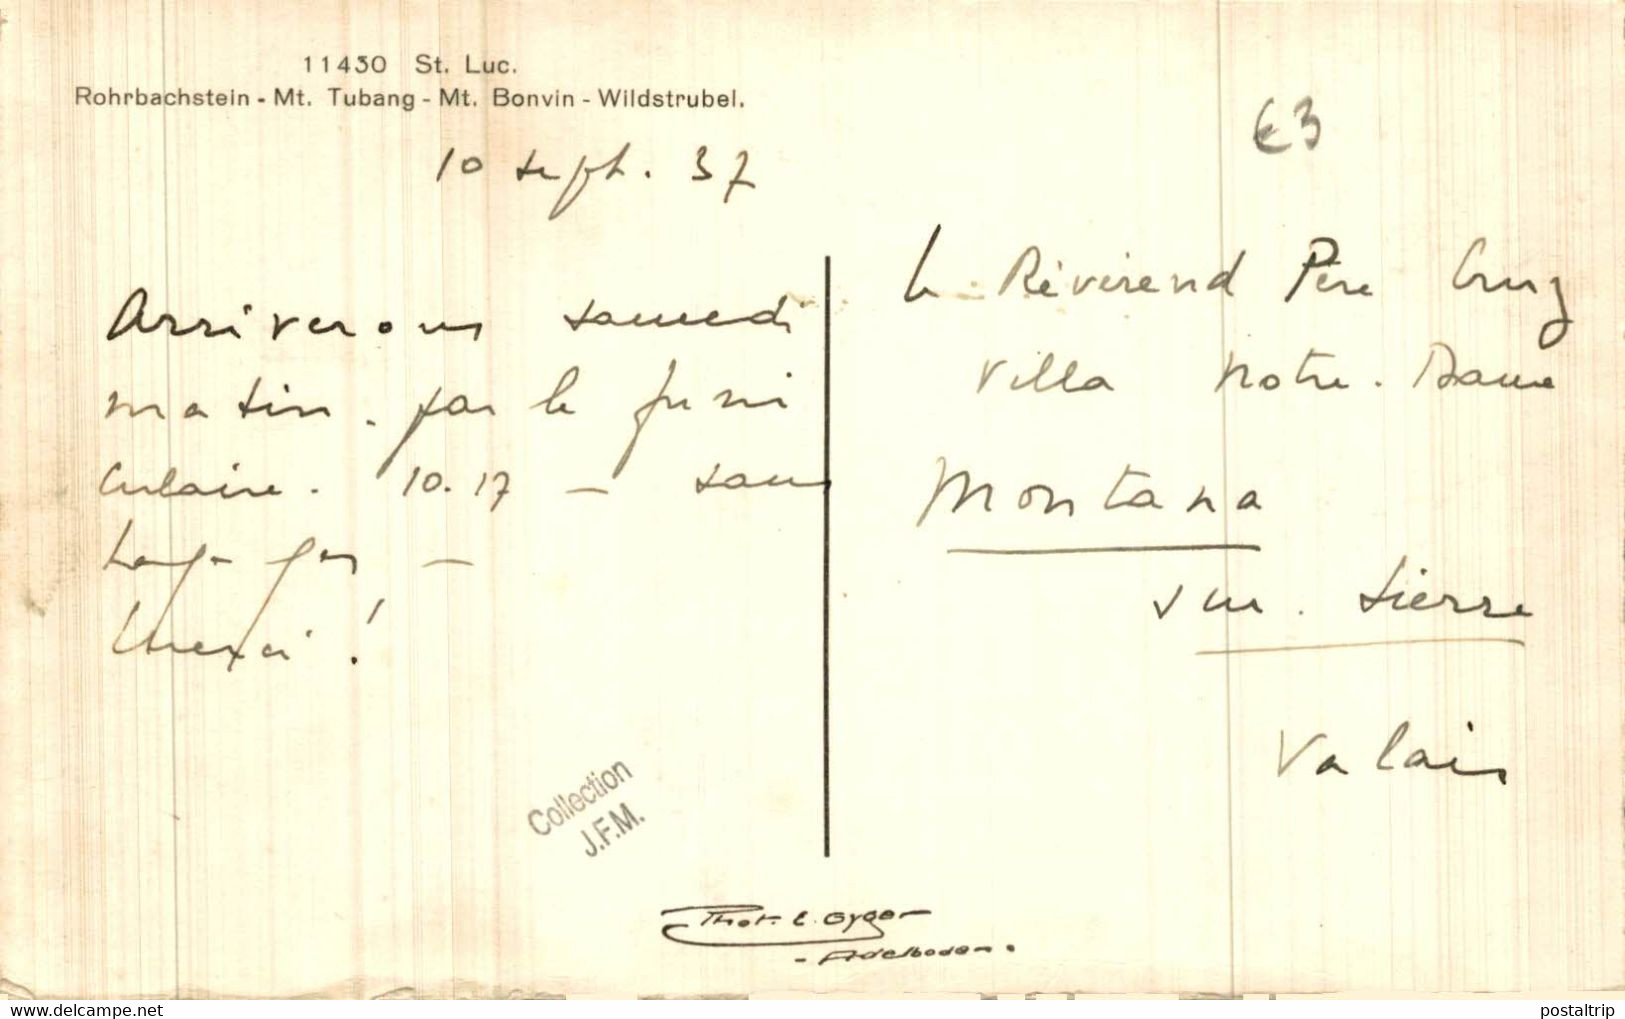 11430 St. Luc.
Rohrbachstein - Mt. Tubang - Mt. Bonvin - Wildstrubel.
10 sept. 37
€3
Arriverons samedi
matin. par le funi
culaire. 10.17 — sauf
Merci !
Le Révérend Père Cruz
Villa Notre. Dame
Montana
sur. Sierre
Valais
Collection
J.F.M.
Phot. E. Gyger
- Adelboden.
www.delcampe.net
postaltrip